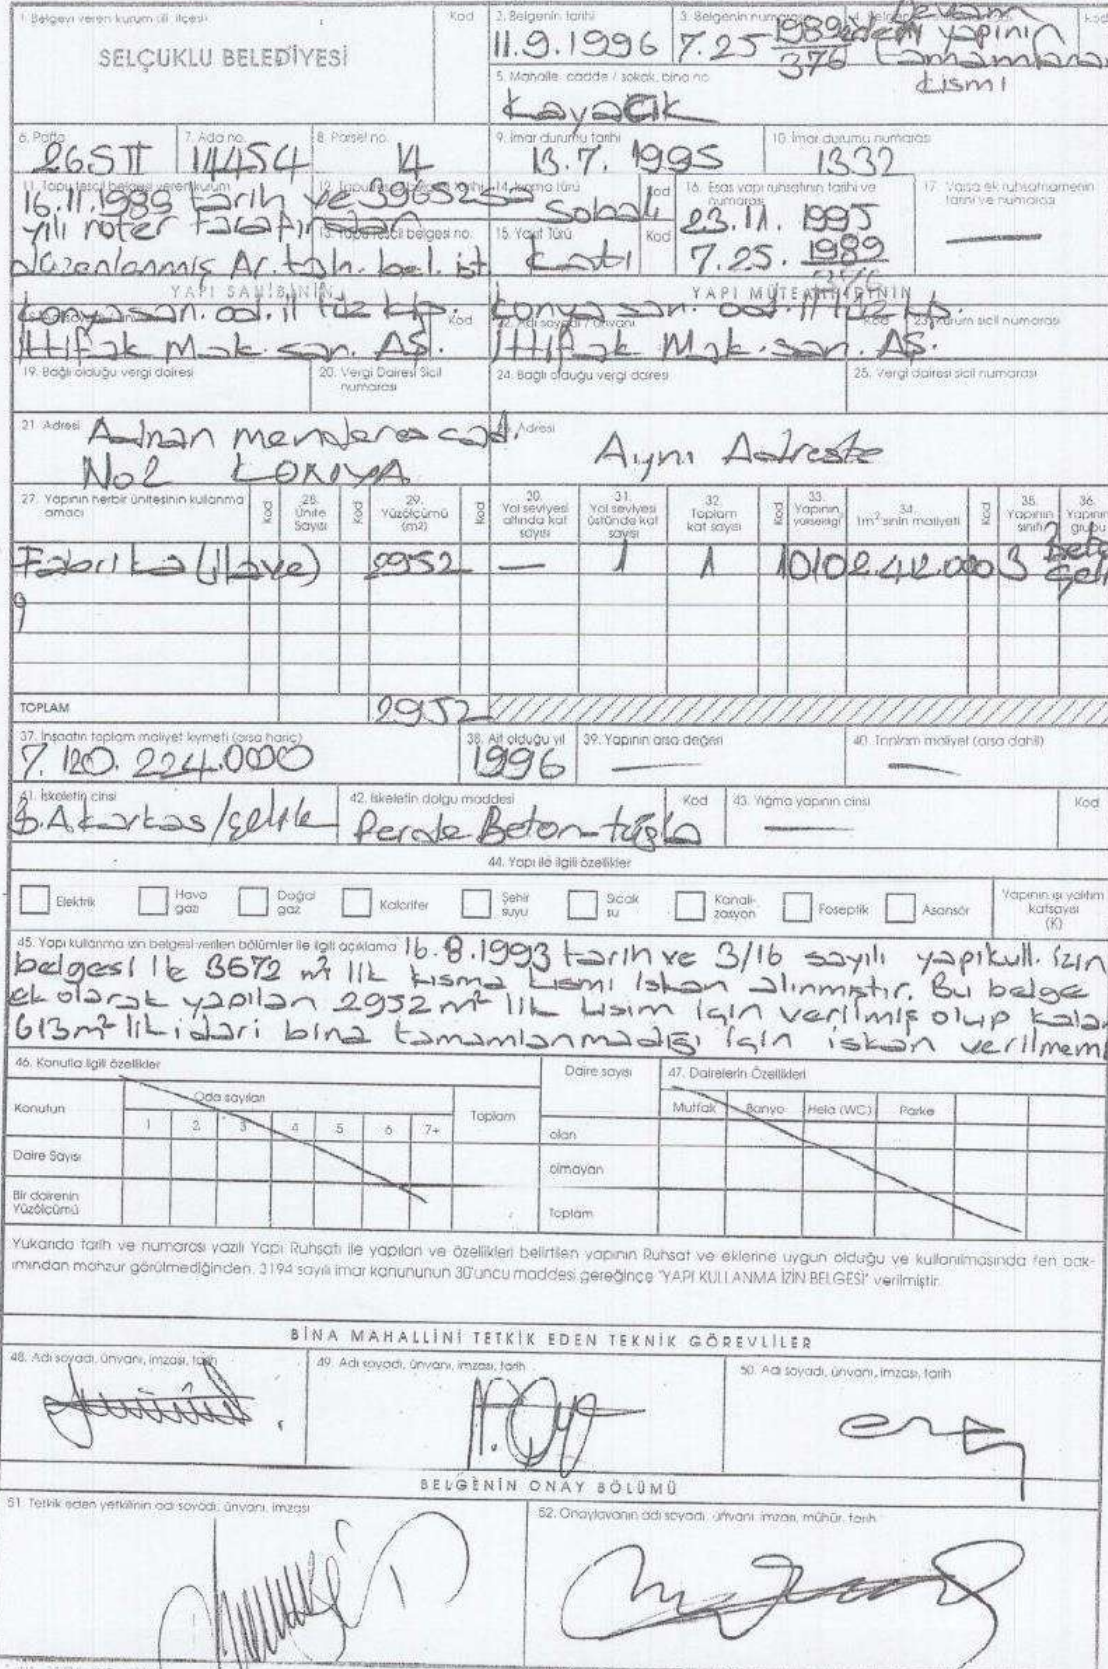 1. Belgeyi veren kurum (ili, ilçesi)
Kod
SELÇUKLU BELEDİYESİ
2. Belgenin tarihi
11.9.1996
3. Belgenin numarası
7.25 1989/376
Devam
eden yapının
tamamlanan
kısmı
5. Mahalle, cadde / sokak, bina no
Kayacık
6. Pafta
26SII
7. Ada no.
14454
8. Parsel no.
14
9. İmar durumu tarihi
13.7.1995
10. İmar durumu numarası
1332
11. Tapu tescil belgesi veren kurum
16.11.1989 tarih ve 39652
yılı noter tarafından
düzenlenmiş Ar.tah.bel.ist
13. Tapu tescil belgesi no.
14. Isıtma türü
Kod
Sobalı
15. Yakıt Türü
Kod
Katı
16. Esas yapı ruhsatının tarihi ve
numarası
23.11.1995
7.25. 1989
17. Varsa ek ruhsatnamenin
tarihi ve numarası
—
YAPI SAHİBİNİN
YAPI MÜTEAHHİDİNİN
Konya san. od. il tüz kİp.
İttifak Mak. san. AŞ.
Kod
Konya san. od. il tüz kp.
22. Adı soyadı / ünvanı
Kod
23. Kurum sicil numarası
İttifak Mak. san. AŞ.
19. Bağlı olduğu vergi dairesi
20. Vergi Dairesi Sicil
numarası
24. Bağlı olduğu vergi dairesi
25. Vergi dairesi sicil numarası
21. Adresi
Adnan menderes cad.
No2 KONYA
Adresi
Aynı Adreste
27. Yapının herbir ünitesinin kullanma
amacı
Kod
28.
Ünite
Sayısı
Kod
29.
Yüzölçümü
(m2)
Kod
30.
Yol seviyesi
altında kat
sayısı
31.
Yol seviyesi
üstünde kat
sayısı
32.
Toplam
kat sayısı
Kod
33.
Yapının
yüksekliği
34.
1m² sinin maliyeti
Kod
35.
Yapının
sınıfı
36.
Yapının
grubu
Fabrika (ilave) 2952 — 1 1 1010 2.412.000 3
TOPLAM
2952
37. İnşaatın toplam maliyet kıymeti (arsa hariç)
7.120.224.0000
38. Ait olduğu yıl
1996
39. Yapının arsa değeri
—
40. Toplam maliyet (arsa dahil)
—
41. İskeletin cinsi
B.A karkas/çelik
42. İskeletin dolgu maddesi
Kod
Perde Beton-tuğla
43. Yığma yapının cinsi
Kod
—
44. Yapı ile ilgili özellikler
Elektrik
Hava
gazı
Doğal
gaz
Kalorifer
Şehir
suyu
Sıcak
su
Kanali-
zasyon
Foseptik
Asansör
Yapının ısı yalıtım
katsayısı
(K)
45. Yapı kullanma izin belgesi verilen bölümler ile ilgili açıklama 16.8.1993 tarih ve 3/16 sayılı yapıkull. izin
belgesi ile 3672 m² lik kısma kısmi iskan alınmıştır. Bu belge
ek olarak yapılan 2952 m² lik kısım için verilmiş olup kalan
613 m² lik idari bina tamamlanmadığı için iskan verilmemi
46. Konutla ilgili özellikler
Konutun
Oda sayıları
1 2 3 4 5 6 7+
Toplam
Daire Sayısı
Bir dairenin
Yüzölçümü
Daire sayısı
olan
olmayan
Toplam
47. Dairelerin Özellikleri
Mutfak Banyo Hela (WC) Parke
Yukarıda tarih ve numarası yazılı Yapı Ruhsatı ile yapılan ve özellikleri belirtilen yapının Ruhsat ve eklerine uygun olduğu ve kullanılmasında fen bak-
ımından mahzur görülmediğinden, 3194 sayılı imar kanununun 30'uncu maddesi gereğince "YAPI KULLANMA İZİN BELGESİ" verilmiştir.
BİNA MAHALLİNİ TETKİK EDEN TEKNİK GÖREVLİLER
48. Adı soyadı, ünvanı, imzası, tarih
49. Adı soyadı, ünvanı, imzası, tarih
50. Adı soyadı, ünvanı, imzası, tarih
BELGENİN ONAY BÖLÜMÜ
51. Tetkik eden yetkilinin adı soyadı, ünvanı, imzası
52. Onaylayanın adı soyadı, ünvanı, imzası, mühür, tarih